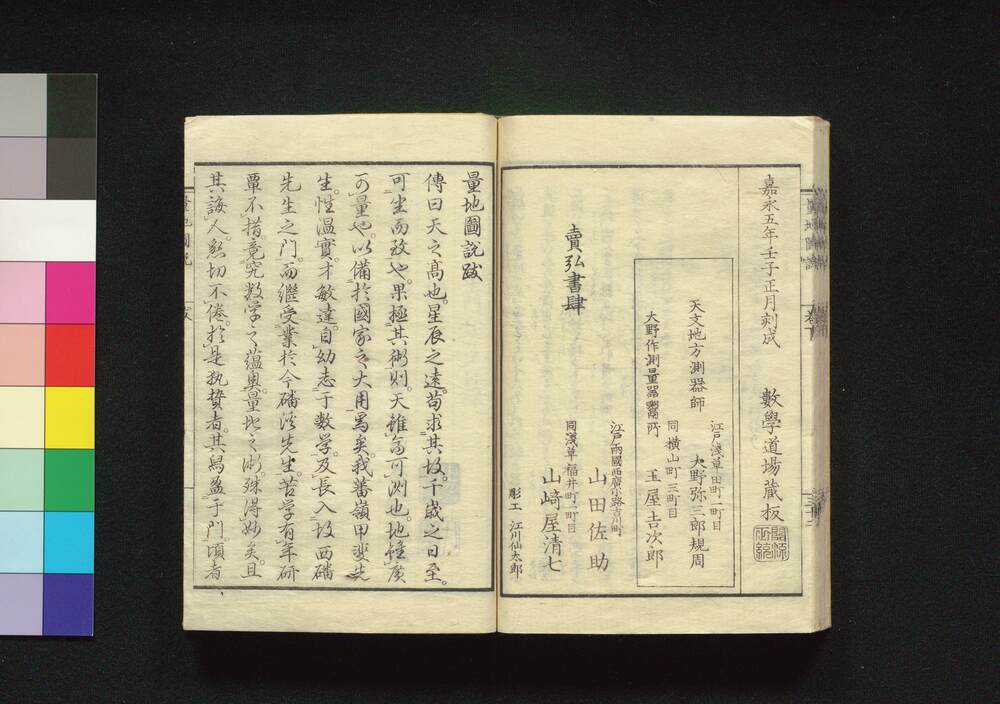 嘉永五年壬子正月刻成　數學道場藏板
天文地方測器師
江戸淺草田町一町目
大野弥三郎規周
同橫山町三町目
大野作測量器鬻所　玉屋吉次郎
賣弘書肆
江戸兩國西廣小路吉川町
山田佐助
同淺草福井町一町目
山﨑屋清七
彫工　江川仙太郎
量地圖説跋
傳曰天之髙也。星辰之遠。苟求其故。千歳之日至。
可坐而致也。果極其術則。天雖髙可測也。地雖廣
可量也。以備於國家之大用焉矣。我蕃嶺甲斐先
生。性温實。才敏達。自幼志于数学。及長入故西磻
先生之門。而繼受業於今磻溪先生。苦学有年研
覃不措。竟究数学之蘊奧。量地之術。殊得妙矣。且
其誨人懇切不倦。於是執贄者。其舄盈于門。頃者